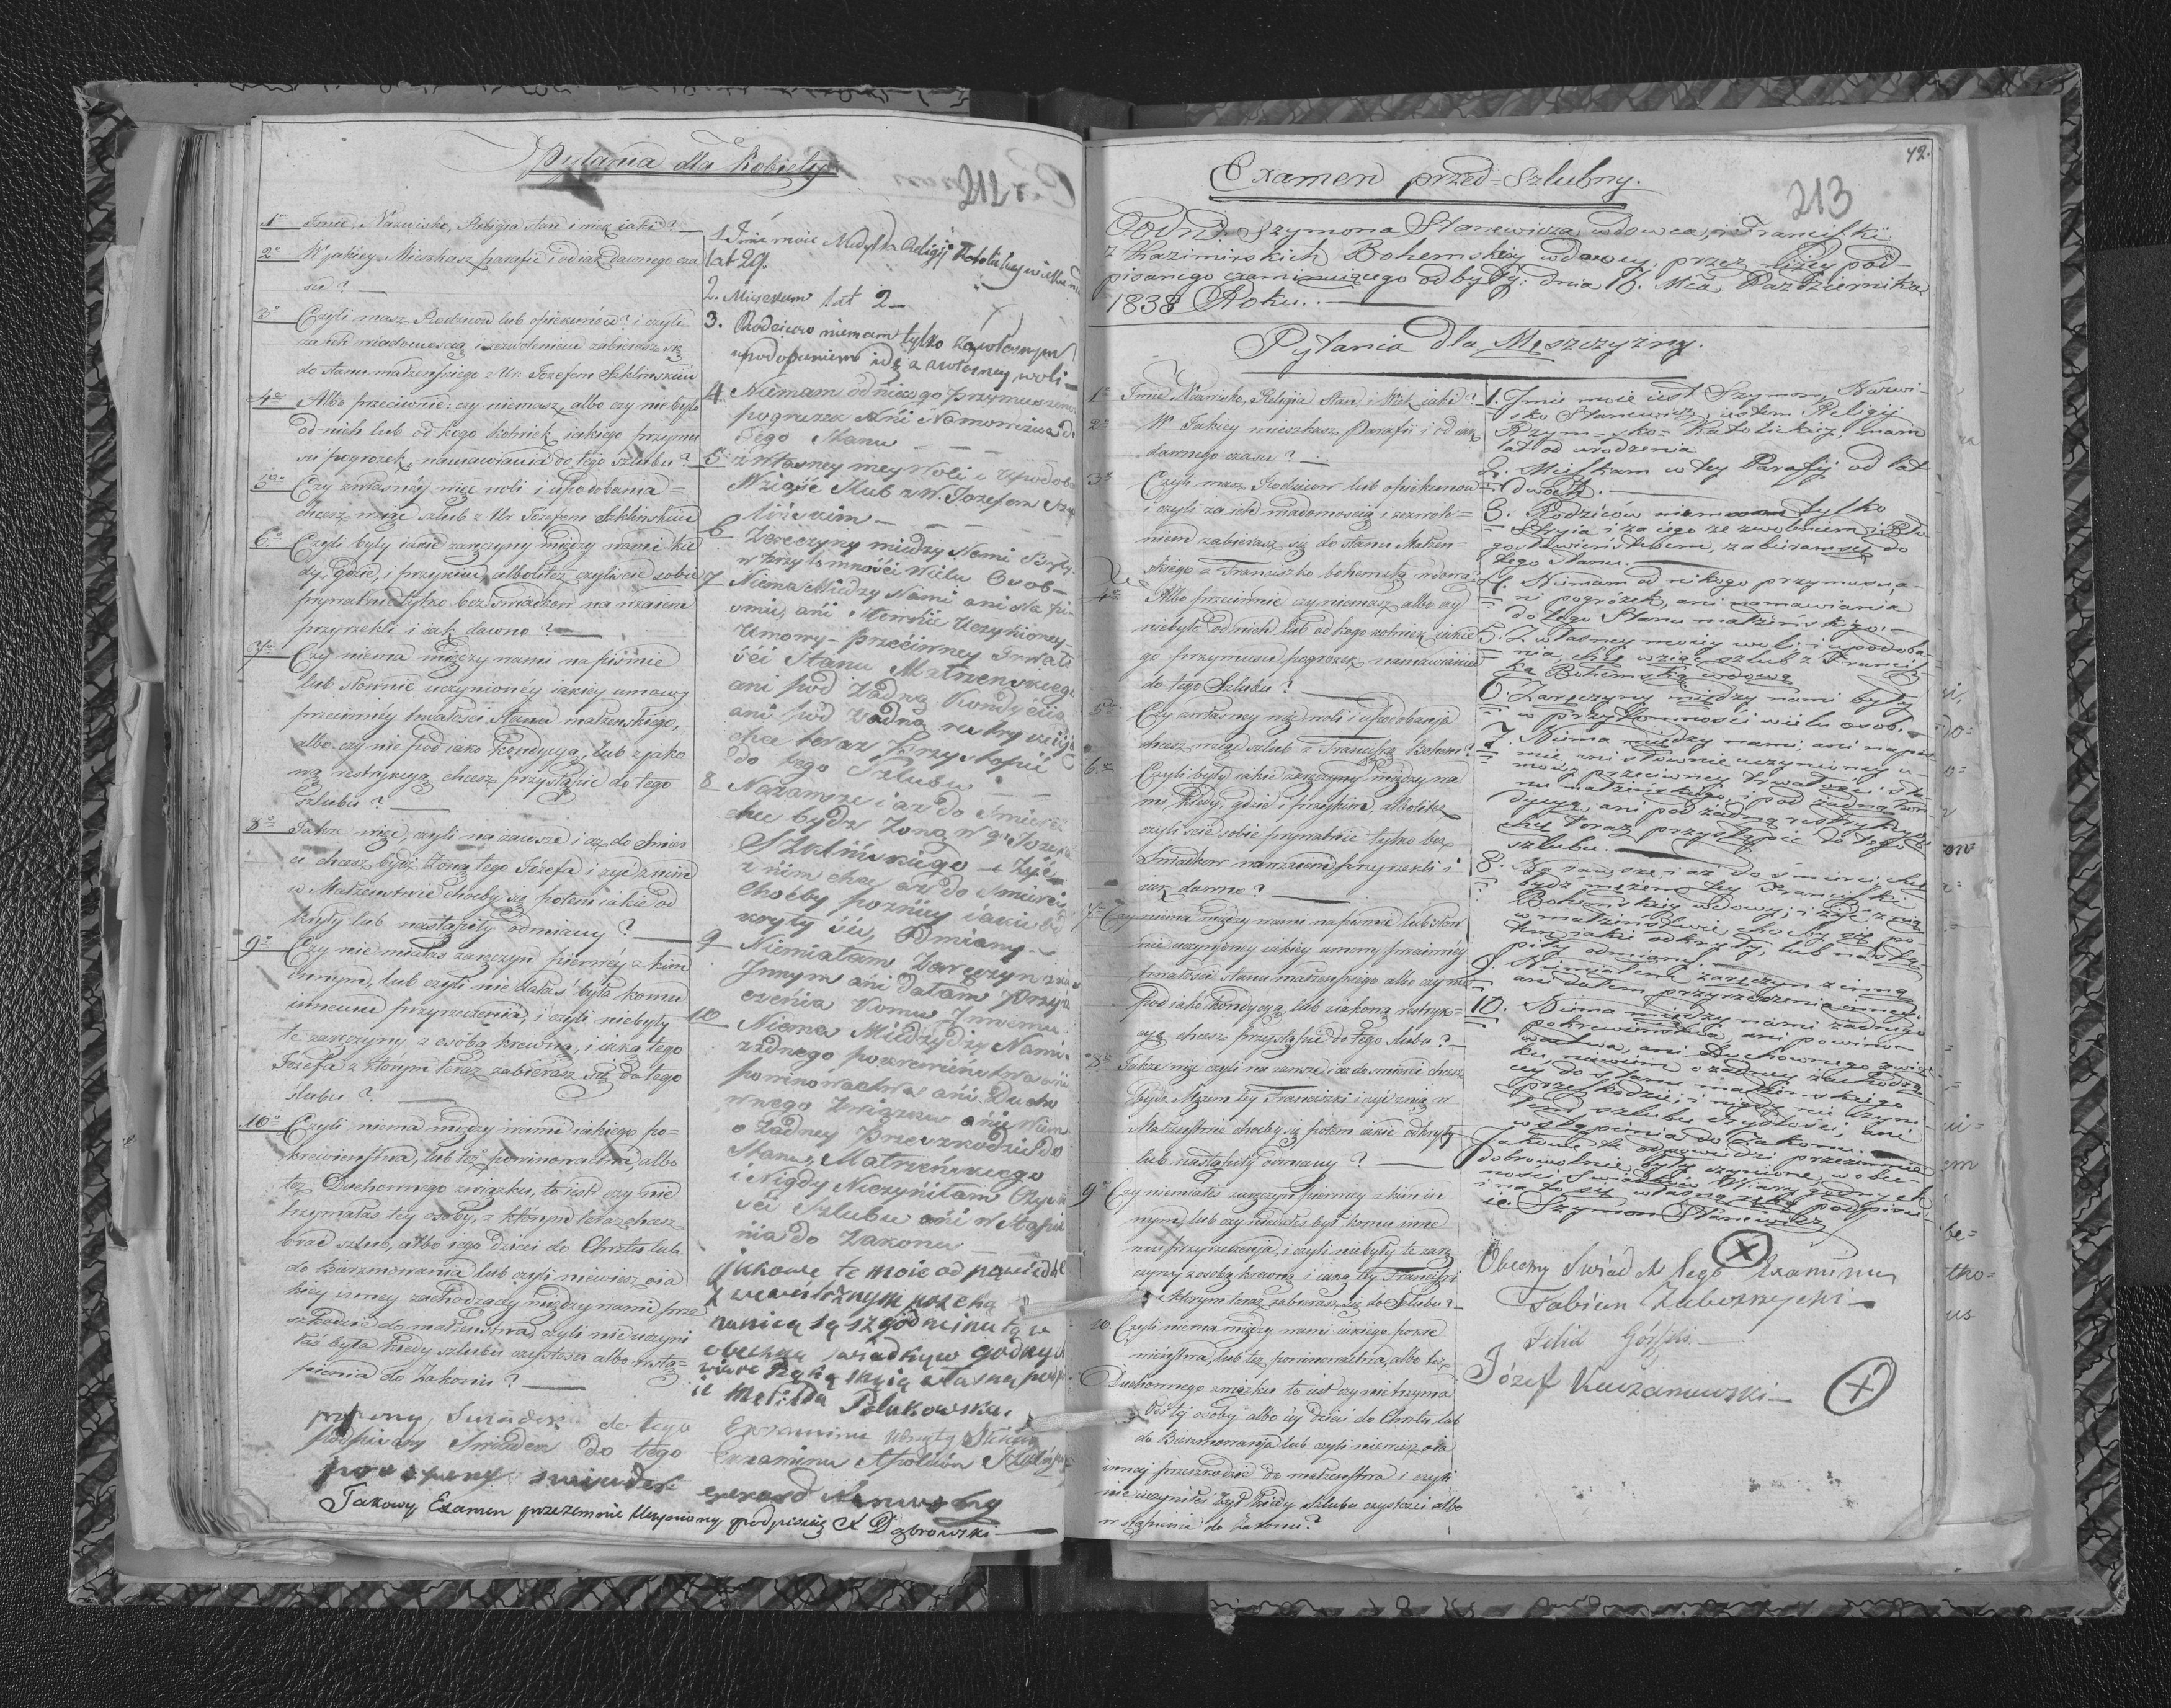 Pytania dla Kobiety
212
1o Imie, Nazwisko, Religia stan i wiek iaki?
2o W jakiey Mieszkasz parafii i od iak dawnego cza
su?
3o Czyli masz Rodziców lub opiekunów? i czyli
za ich wiadomością i zezwoleniem zabierasz się
do stanu małżeńskiego z Ur Józefem Szklińskim
4o Albo przeciwnie: czy niemasz albo czy nie było
od nich lub od kogo kolwiek iakiego przymu
su pogrozek, namawiania do tego szlubu?
5o Czy własnéy więc woli i upodobania =
chcesz wziąć szlub z Ur Józefem Szklińskim
6o Czyli były iakie zaręczyny między wami kie
dy, gdzie, i przy kim, albolitéz czyliście sobie
prywatnie tylko bez świadków na wzaiem
przyrzekli i iak dawno?
7o Czy niema między wami na piśmie
lub słownie uczynionéy iakiéy umowy
przeciwnéy trwałości stanu małżeńskiego,
albo czy nie pod iaką kondycyą, lub z jako
wą restrykcyą chcesz przystąpić do tego
szlubu?
8o Także więc czyli na zawsze i aż do śmier
ci chcesz bydź żoną tego Józefa i żyć z nim
w Małżeństwie choćby się potem iakie od
kryły lub nastąpiły odmiany?
9o Czy nie miałaś zaręczyn pierwéy z kim
innym, lub czyli nie dałaś była komu
innemu przyrzeczenia, i czyli niebyły
te zaręczyny z osobą krewną, i iaką tego
Józefa z którym teraz zabierasz się do tego
ślubu?
10o Czyli niema między wami iakiego po=
krewieństwa, lub téż powinowactwa albo
téż Duchownego związku, to iest czy nie
trzymałaś téy osoby, z którym teraz chcesz
brać szlub, albo iego dzieci do Chrztu lub
do Bierzmowania lub czyli niewiesz o ia
kiey inney zachodzącey między wami prze
szkodzie do małżeństwa czyli nie uczyni
łaś była kiedy szlubu czystości albo wstą=
pienia do Zakonu?
1. Imie moie Religij Katolickiey
lat 29.
2. Mieszkam lat 2 —
3. Rodziców niemam tylko za własnym
upodobaniem idę z własney woli —
4. Niemam od nikogo Przymuszenia
pogrużek Ańi Namowiania do
Tego Stanu
5 z Własney mey Woli i Upodoba
Wziąść Slub z W. Jozefem Szk
lińskim —
6 Zaręczyny miedzy Nami Były
w Przytomności Wielu Osob —
7 Niema Miedzy Nami ani Na piś
smie, ańi Słownie Uczynioney
Umowy — Przeciwney Trwało
ści Stanu Małrzenskiego
ani pod Żadną Kondycią
ani pod Żadną restrykciją
chce teraz Przystąpić
do tego Szlubu
8 Nazawsze i az do Śmierci
chce bydz Żoną Wgo Jozefa
Szklińskiego — i Żyć
z nim chcę aż do Śmierci
Choćby poźniey iakie od
kryły się, Odmiany —
9 Niemiałam Zaręczyn z
Innym ańi dałam Przyrz
eczenia Komu Innemu
10 Niema Miedzy Nami
żadnego pokrewieństwa ańi
powinowactwa ańi Ducho
wnego Związku ańi Wiem
o Żadney Przeszkodzie do
Stanu, Małrzeńskiego
i Nigdy Nieczyniłam Czysto
ści Szlubu ańi Wstąpie
nia do Zakonu
jakowe te moie odpowiedzi
obecnych godnych
własną
Polakowska.
podpisany Swiadek do tego Examinu
podpisany Swiadek do tego Examinu
podpisany swiadek
Takowy Examen przezemnie Uczyniony podpisuię X Dąbrowski —
42.
213
Examen przed=szlubny.
Szymona Staniewicza wdowca, i Franciszki
z Kazimirskich Bohemskiey wdowy, przez niżey pod
pisanego examinuiącego odbyty. dnia Mca Pazdziernika
1838 Roku. —
Pytania dla Męszczyzny.
1o Imie Nazwisko, Religia Stan i Wiek iaki?
2o W Jakiey mieszkasz Parafii i od iak
dawnego czasu? —
3o Czyli masz Rodziców lub opiekunów
i czyli za ich wiadomością i zezwole=
niem zabierasz się do stanu Małżeń=
skiego z Franciszką bohemską wdową
4o Albo przeciwnie czy niemasz albo czy
niebyło od nich lub od kogo kolwiek iakie
go przymusu pogrozek namawiania
do tego Szlubu?
5o Czy własney więc woli i upodobania
chcesz wziąć szlub z Franciszką Bohem?
6o Czyli były iakie zaręczyny między wa
mi, kiedy, gdzie i przy kim, albolitéż
czyliście sobie prywatnie tylko bez
Świadków nawzaiem przyrzekli i
iak dawno?
7o Czy niema między wami na piśmie lub słow
nie uczynioney iakiéy umowy przeciwnéy
trwałości stanu małżeńskiego albo czy nie
pod iaką kondycyą, lub z iakową restryk=
cyą chcesz przystąpić do tego ślubu?
8o Także więc czyli na zawsze i aż do śmierci chcesz
Bydź Mężem téy Franciszki i żyć z nią w
Małżeństwie choćby się potem iakie odkryły
lub nastąpiły odmiany?
9o Czy niemiałeś zaręczyn pierwéy z kim in
nym, lub czy niedałeś był komu inne
mu przyrzeczenia, i czyli niebyły te zarę
czyny z osobą krewną i iaką téy Franciszki
z którym teraz zabierasz się do Szlubu?
10. Czyli niema między wami iakiego pokre
wieństwa, lub téż powinowactwa, albo téż
Duchownego związku to iest czy nietrzyma
łeś téj osoby albo iéy dzieci do Chrztu lub
do Bierzmowania lub czyli niewiesz o ia
innéj przeszkodzie do małżeństwa i czyli
nie uczyniłeś był kiedy szlubu czystości albo
wstąpienia do Zakonu?
1. Imie moie iest Szymon, Nazwi=
sko Staniewicz, iestem Religij
Rzym=sko=Katolickiey, mam
lat od urodzenia
2. Mieszkam w tey Parafij od lat
dwóch. —
3. Rodziców niemam tylko
Stryia i za iego zezwoleniem i Bło
gosławieństwem, zabieram się do
tego Stanu. —
4. Niemam od nikogo przymusu, a
ni pogróżek, ani namawiania
do tego Stanu małżeńskiego. —
5. Z własney moiey woli i upodoba=
nia chcę wziąć szlub z Francisz
ką Bohemską wdową
6. Zaręczyny między nami były
w przytomności wielu osob. —
7. Niema między nami, ani na piś
mie ani słownie uczynioney u=
mowy przeciwney trwałości sta
nu małżeńskiego, i pod żadną kon
dycyą, ani pod żadną restrykcyą
chcę teraz przystąpić do tego
szlubu. —
8. Na zawsze i aż do śmierci chcę
bydź mężem tey Franciszki
Bohemskiey wdowy; i żyć z nią
w małżeństwie choćby się po
tem iakie odkryły, lub nastą=
piły odmiany. —
9. Niemiałem zaręczyn z inną
ani dałem przyrzeczenia inney.
10. Niema między nami żadnego
pokrewieństwa, ani powino=
wactwa, ani Duchownego związ=
ku, niewiem o żadney zachodzą
cey do stanu małżeńskiego
przeszkodzie, i nigdy nie czyni
łem szlubu czystości, ani
wstąpienia do Zakonu. —
Jakowe te odpowiedzi przezemnie
dobrowolnie były czynione, w obec=
ności świadków Wiary godnych
i na to się własną ręką podpisu=
ię. Szymon Staniewicz
Obecny Swiadek tego Examinu
Fabian Zaborzycki —
Felix Górski —
Józef Kuczanowski —